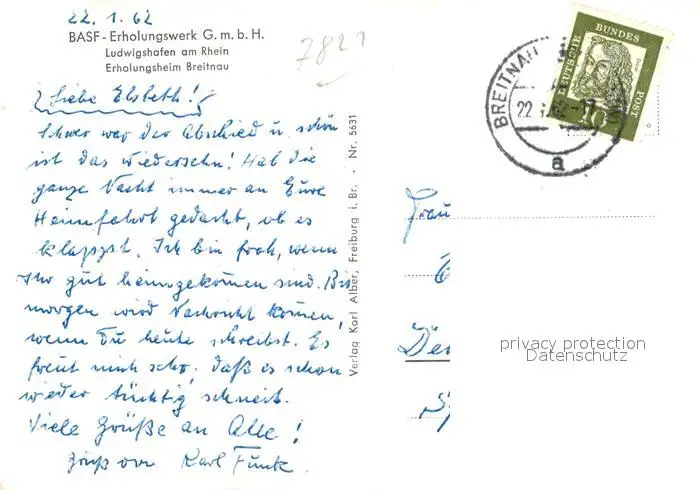 22.1.62
BASF - Erholungswerk G. m. b. H.
Ludwigshafen am Rhein
Erholungsheim Breitnau
7821
Liebe Elsbeth!
Schwer war der Abschied u. schön
ist das Wiedersehn! Hab die
ganze Nacht immer an Eure
Heimfahrt gedacht, ob es
klappt. Ich bin froh, wenn
Ihr gut heimgekommen sind. Bis
morgen wird Nachricht kommen,
wenn Du heute schreibst. Es
freut mich scho, daß es schon
wieder tüchtig schneit.
Viele Grüße an Alle!
Gruß von Karl Funk.
Verlag Karl Alber, Freiburg i. Br. · Nr. 5631
DEUTSCHE BUNDES POST
Dürer
10
BREITNAU
22.1.62-17
a
Frau
privacy protection
Datenschutz